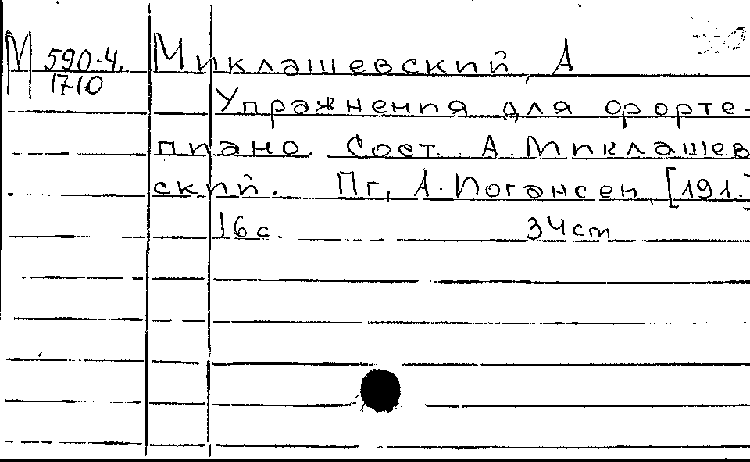 М 590-4. Миклашевский, А
1710
Упражнения для форте-
пиано. Сост. А. Миклашев
ский. Пг, А. Иогансен, [191.]
16 с. 34 cm